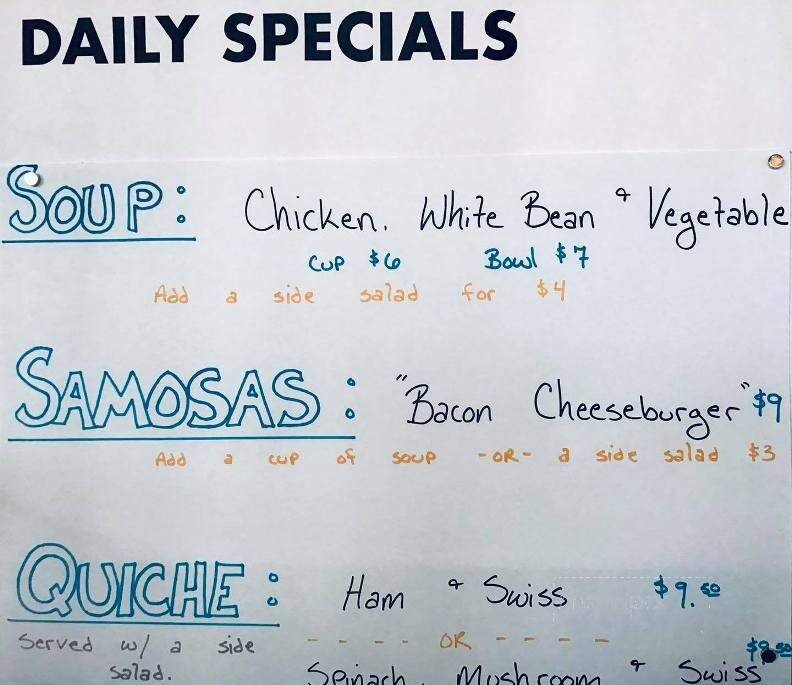 DAILY SPECIALS
SOUP: Chicken, White Bean & Vegetable
Cup $6 Bowl $7
Add a side salad for $4
SAMOSAS: "Bacon Cheeseburger" $9
Add a cup of soup -OR- a side salad $3
QUICHE: Ham & Swiss $9.50
Served w/ a side ---- OR ----
salad. Spinach, Mushroom & Swiss $9.50